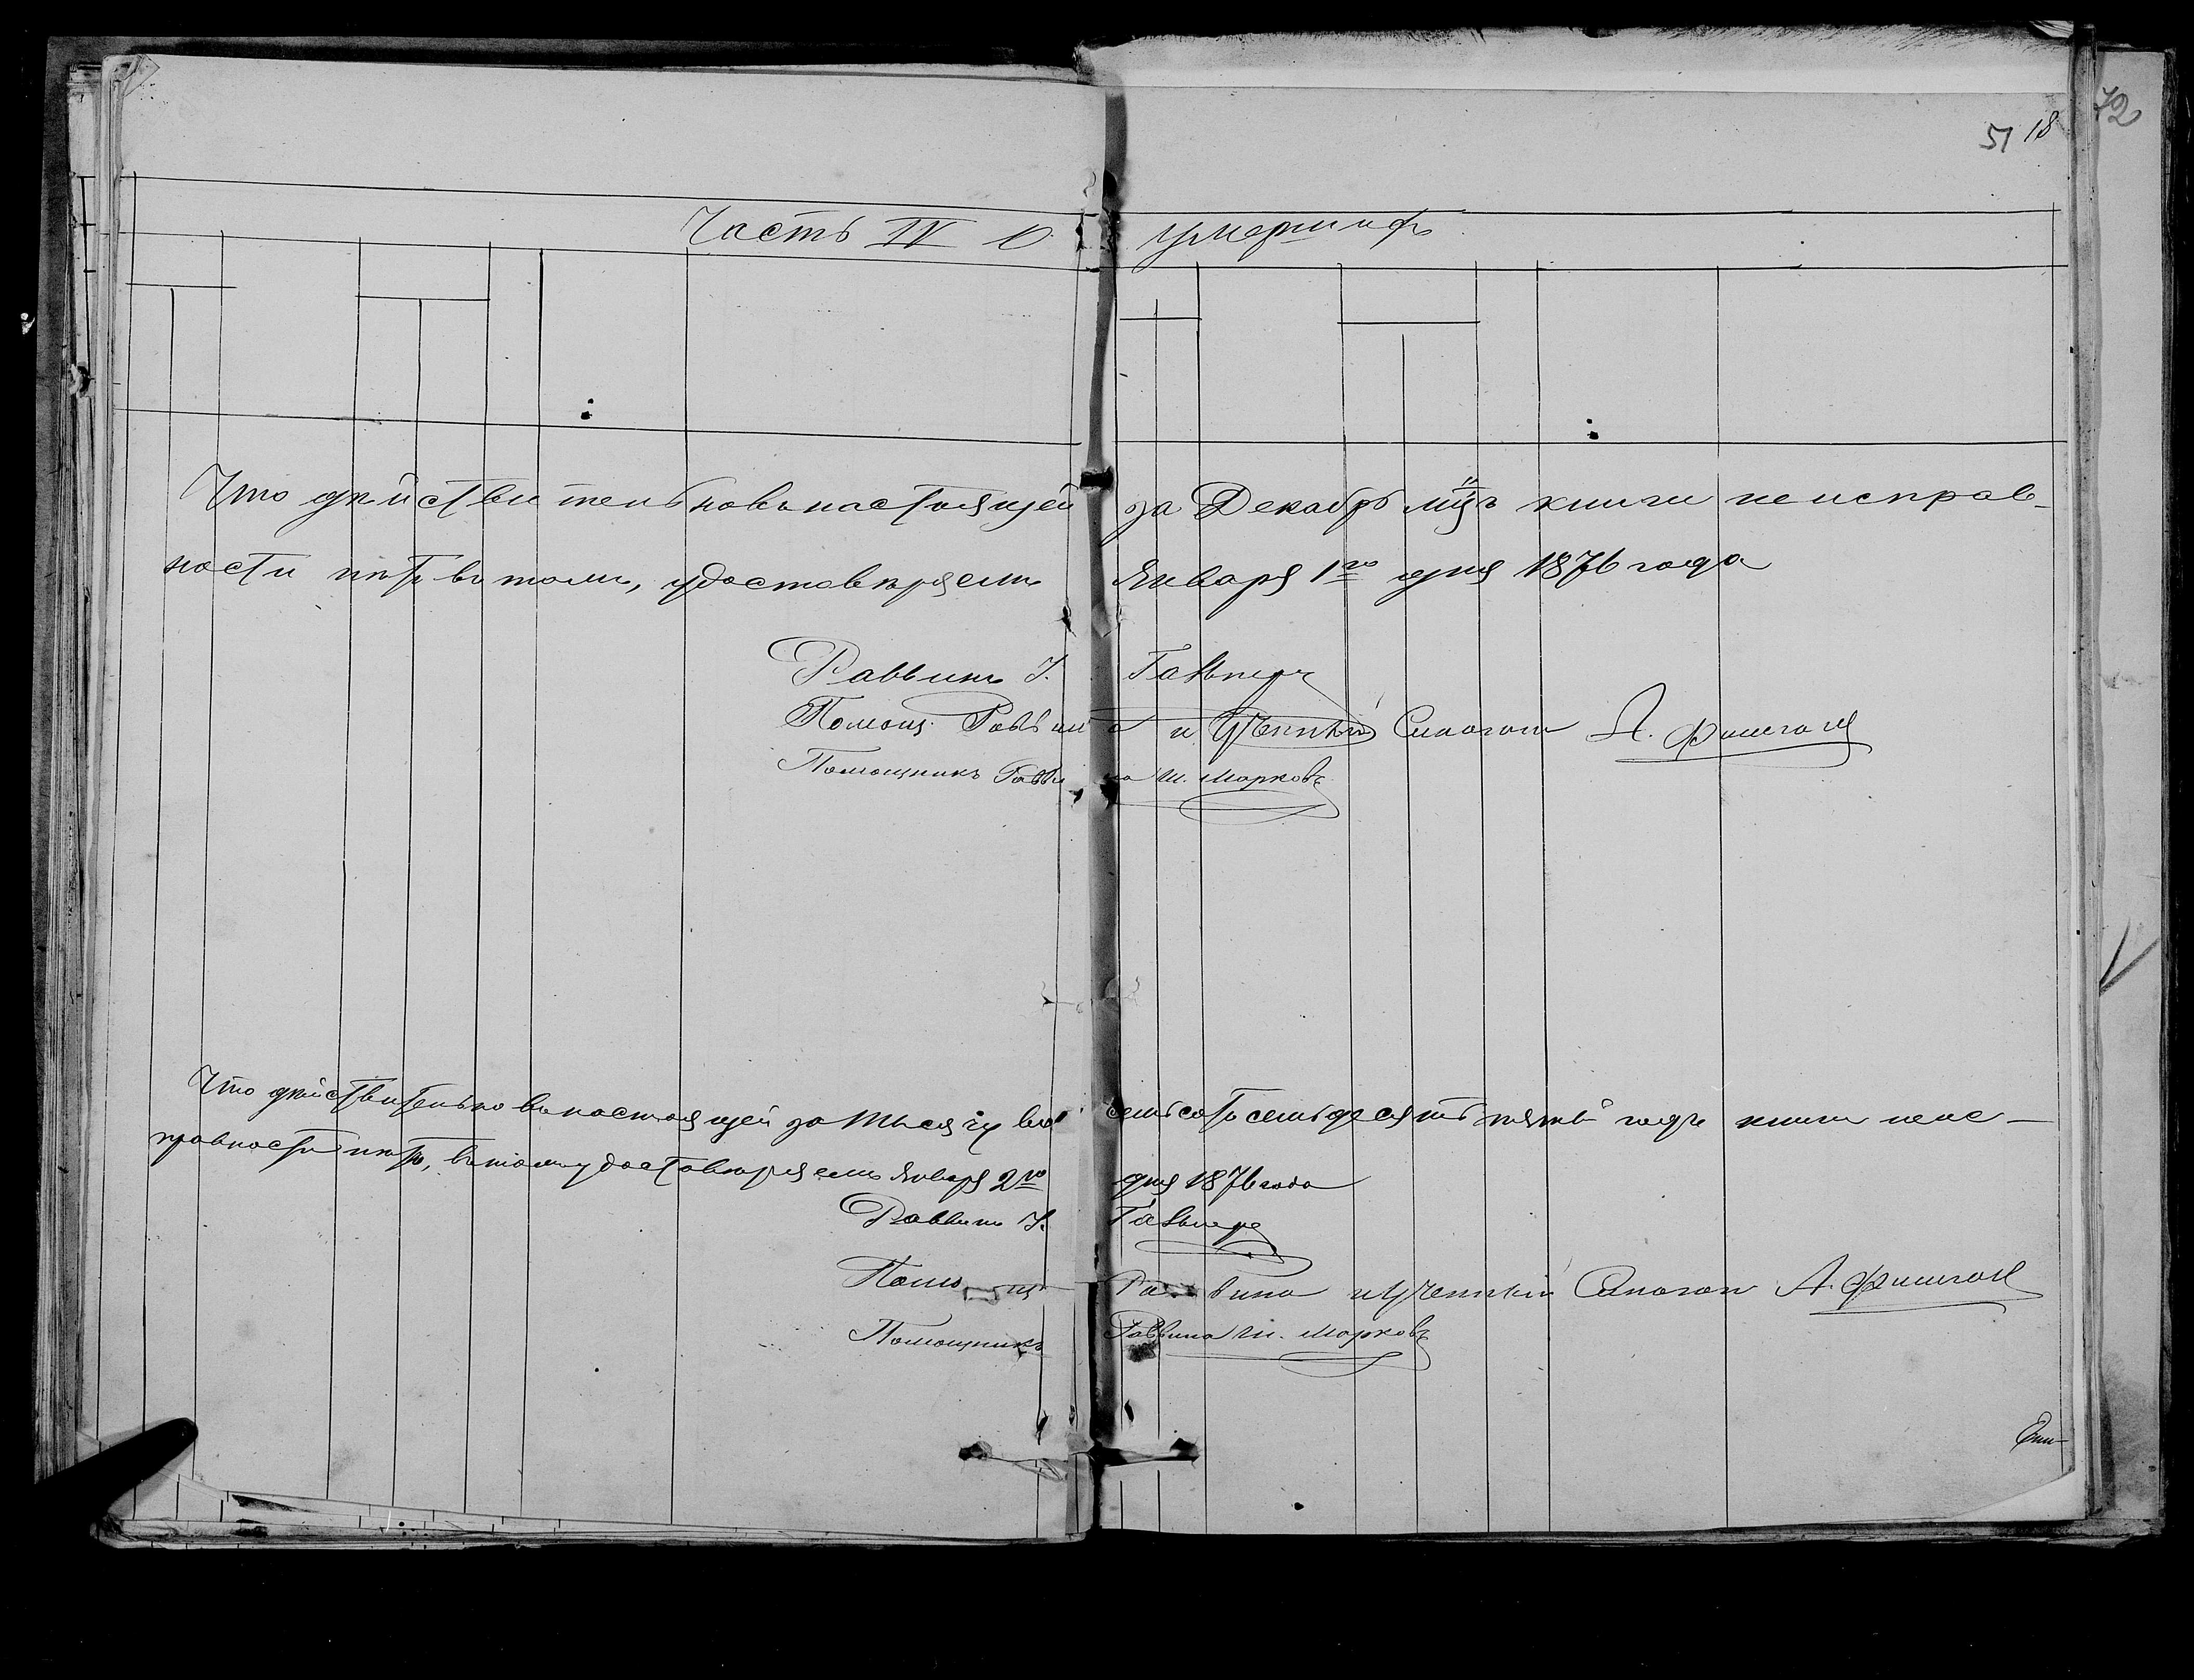 72
51 18
Часть IV О умершихъ
Что дѣйствительно въ настоящей за Декабрь мцъ книги неисправ-
ности нѣтъ въ томъ, удостовѣряемъ Января 1го дня 1876 года
Раввинъ I. Гальпернъ
Помощ. Раввина и Ученый Синагоги А. Фишгаль
Помощникъ Раввина Ш. Марковъ
Что дѣйствительно въ настоящей за тысячу восемьсотъ семьдесятъ пятый годъ книги неис-
правности нѣтъ, въ томъ удостовѣряемъ Января 2го дня 1876 года
Раввинъ I. Гальпернъ
Помощ Раввина и Ученый Синагоги А. Фишгаль
Помощникъ Раввина Ш. Марковъ